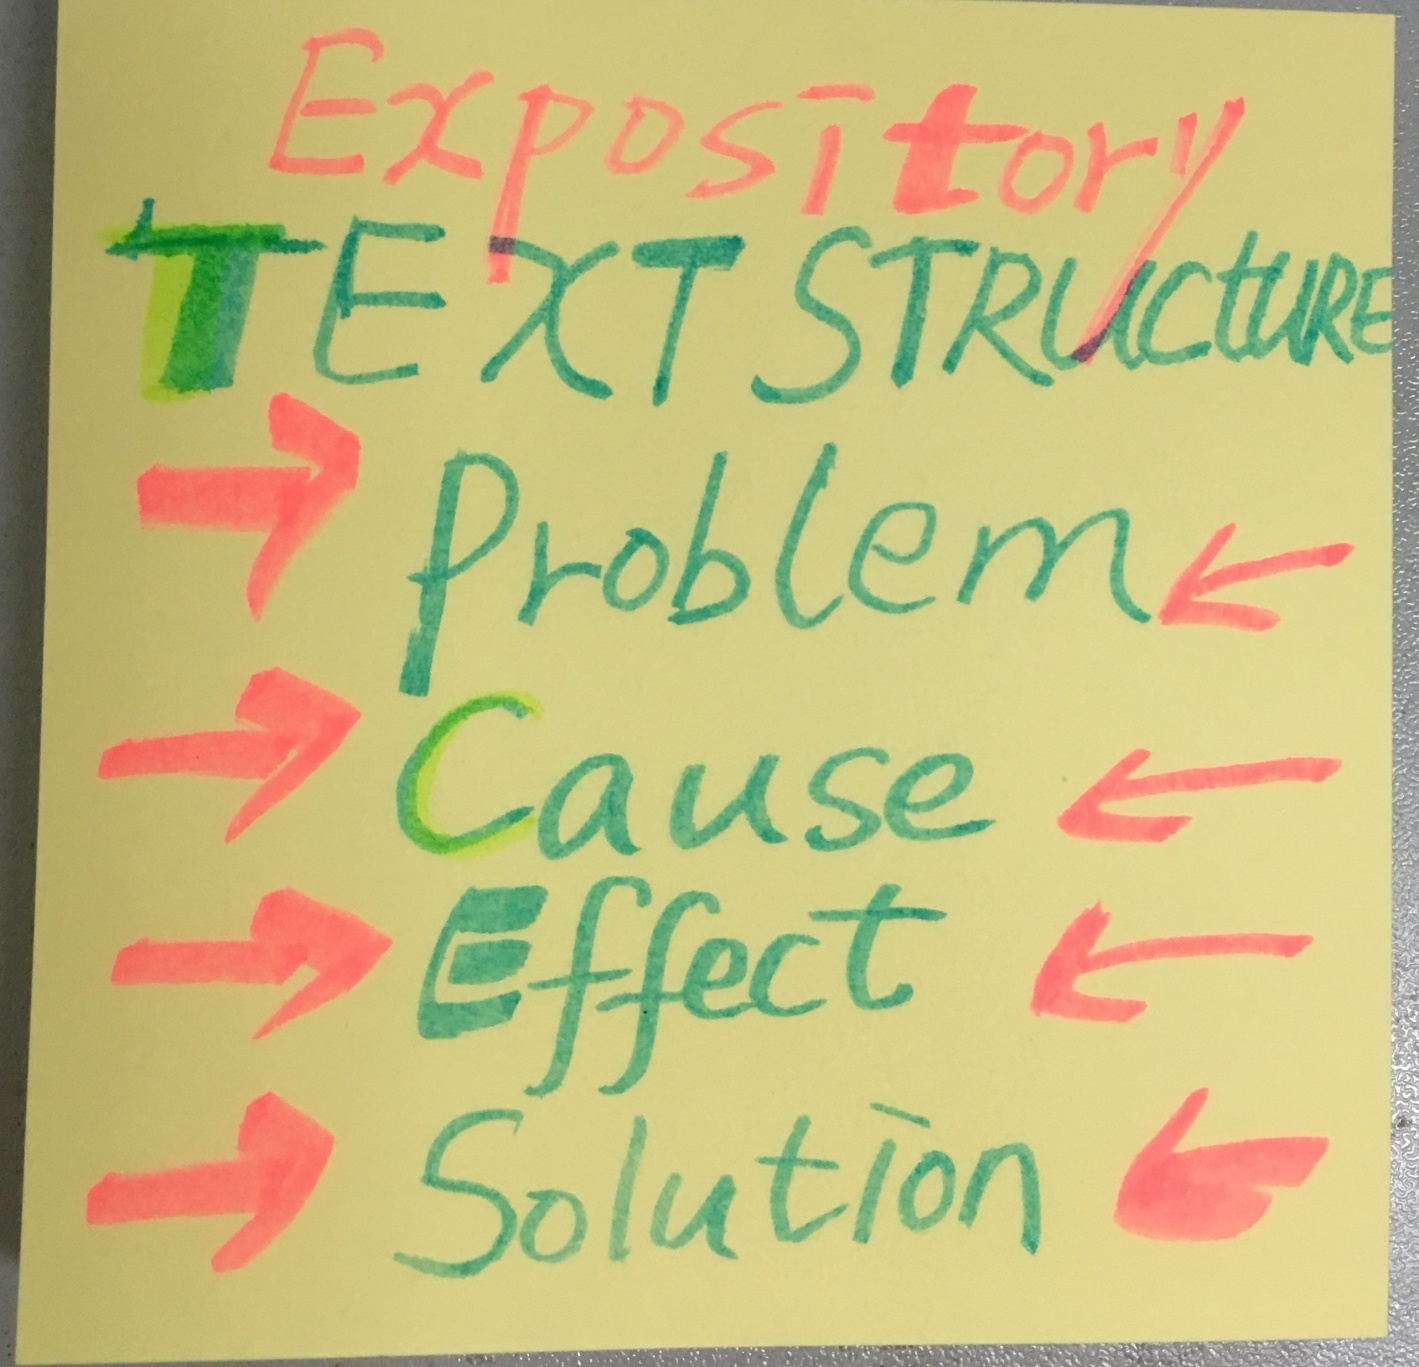 Expository
TEXT STRUCTURE
Problem
Cause
Effect
Solution